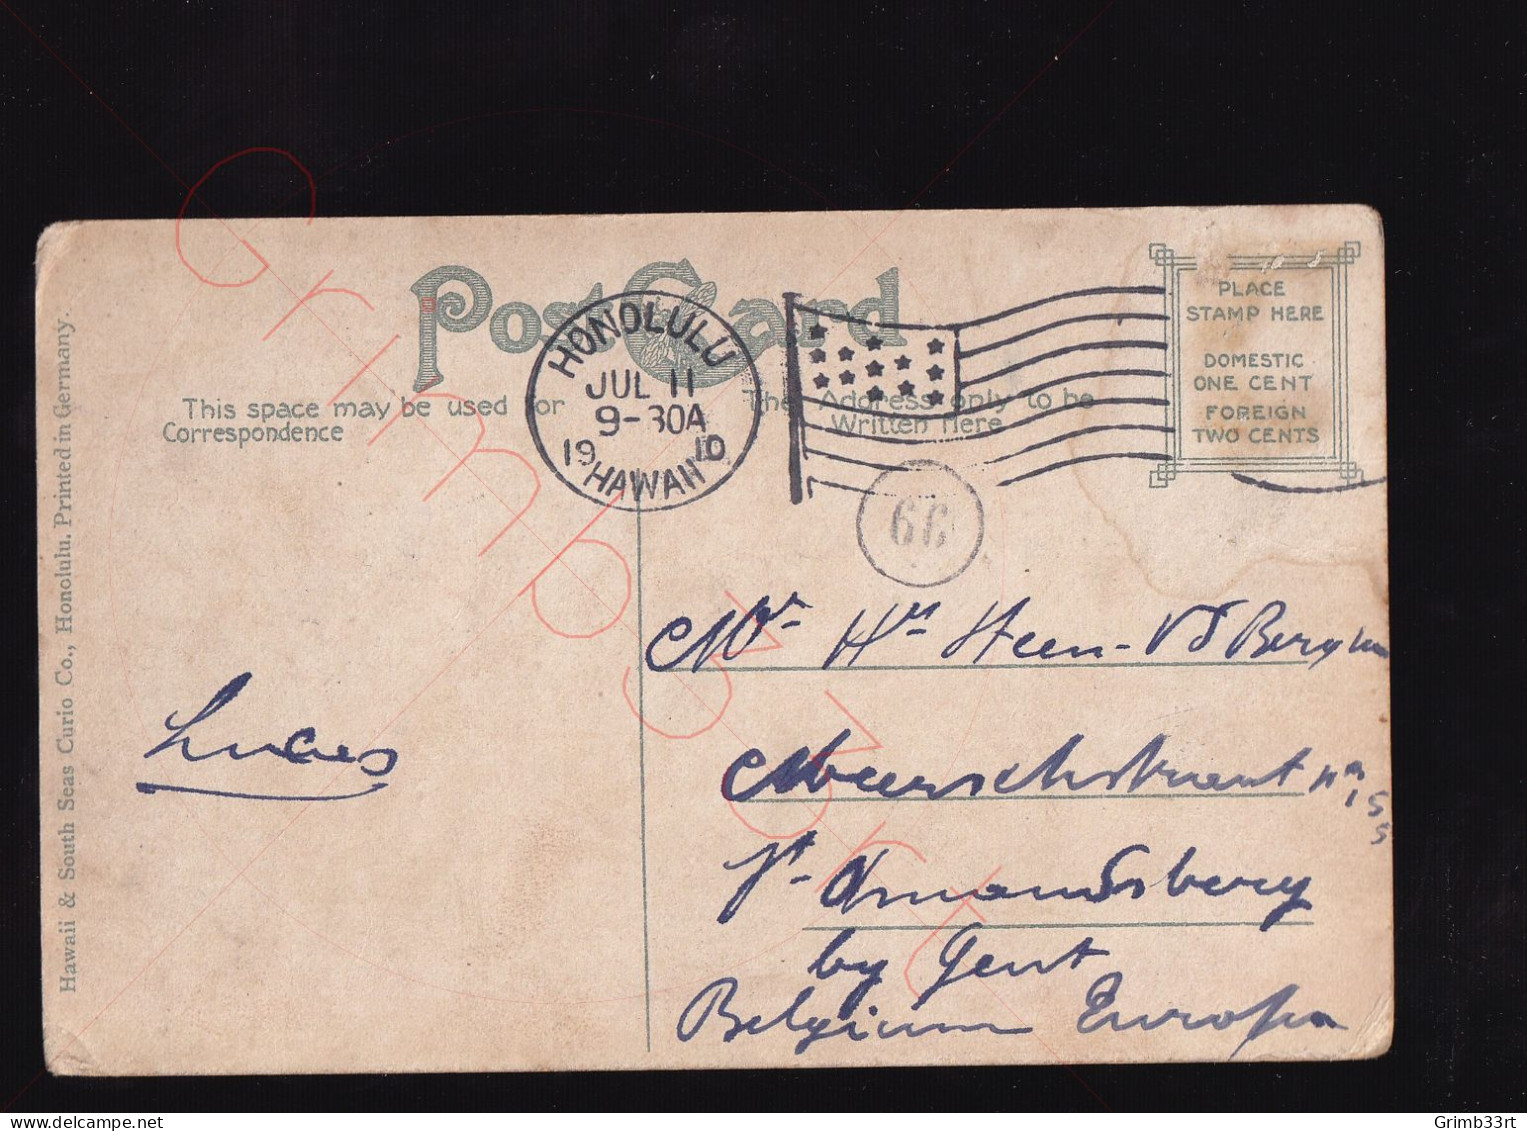 Post Card
HONOLULU
JUL 11
9-30A
1910
HAWAII
PLACE
STAMP HERE
DOMESTIC
ONE CENT
FOREIGN
TWO CENTS
This space may be used for
Correspondence
The Address only to be
Written Here
Hawaii & South Seas Curio Co., Honolulu. Printed in Germany.
Mr Hri Steen-VD Bergh
St Amandsberg
by Gent
Belgium Europa
Grimb33rt
delcampe.net
Grimb33rt